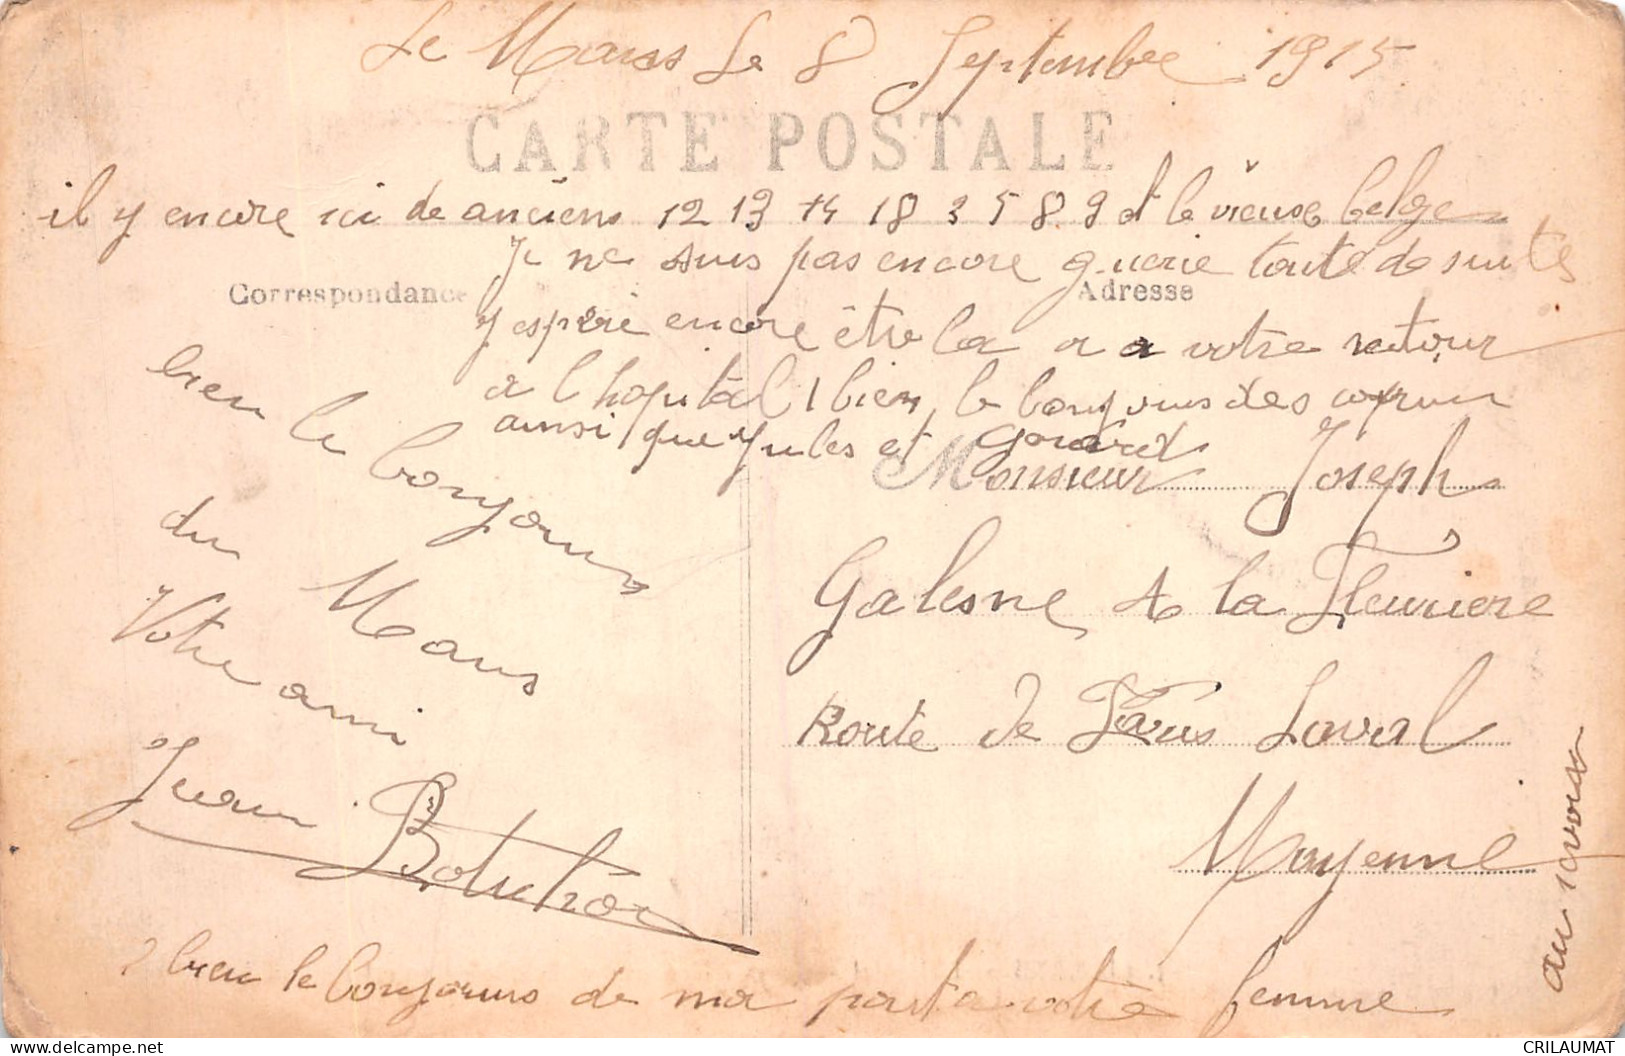 Le Mans Le 8 Septembre 1915
CARTE POSTALE
il y encore ici de anciens 12 13 14 18 3 5 8 9 et le vieuse belge
Je ne suis pas encore guerie toute de suite
Correspondance
Adresse
J espere encore être la a votre retour
a l hopital bien le bonjours des
ainsi que Jules et
bien le bonjours
du Mans
Votre ami
Monsieur Joseph
Galesne A la Fleuriere
Route de Paris Laval
Mayenne
bien le bonjours de ma part a votre femme
au revoir
CRILAUMAT